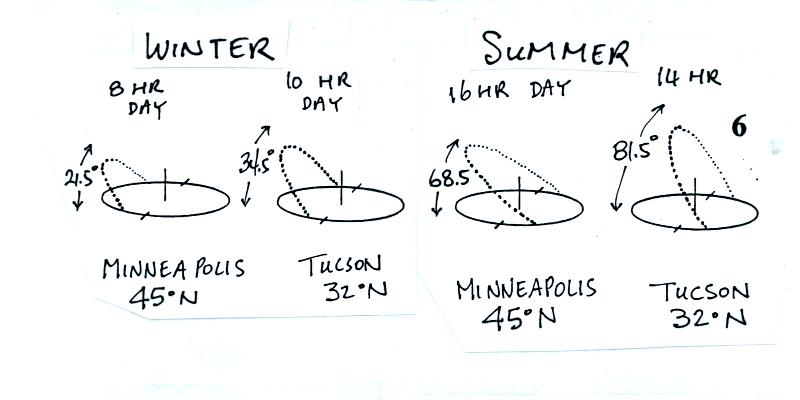 WINTER
8 HR
DAY
10 HR
DAY
21.5°
34.5°
MINNEAPOLIS
45°N
TUCSON
32°N
SUMMER
16 HR DAY
14 HR
6
68.5
81.5°
MINNEAPOLIS
45°N
TUCSON
32°N